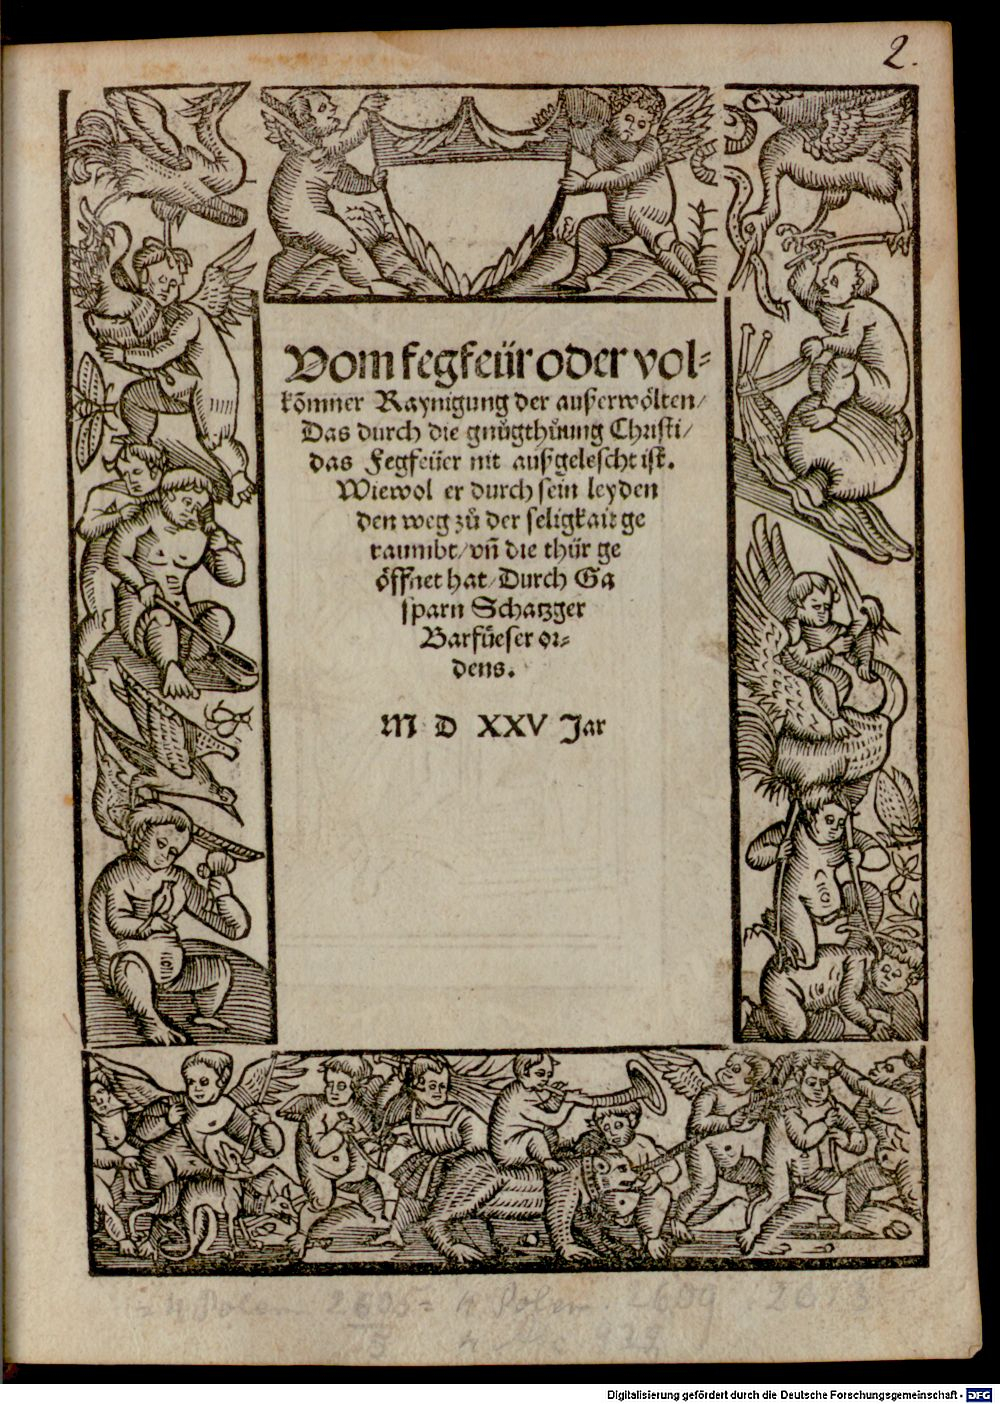 2.
Vom fegfeür oder vol⸗
kom̄ner Raynigung der außerwölten/
Das durch die gnůgthůung Christi/
das Fegfeüer nit außgelescht ist.
Wiewol er durch sein leyden
den weg zů der seligkait ge
raumbt/ vn̄ die thür ge
öffnet hat/ Durch Ga
sparn Schatzger
Barfüeser or⸗
dens.
M D XXV Jar
4 Polem 2605= 4 Polem. 2609
Digitalisierung gefördert durch die Deutsche Forschungsgemeinschaft - DFG